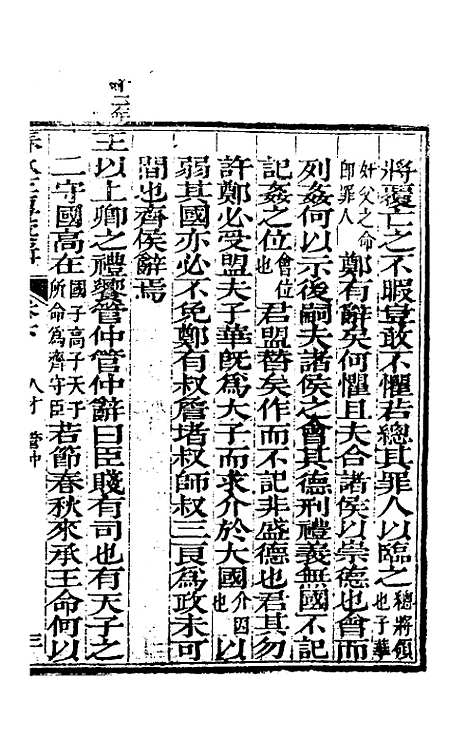 將覆亡之不暇豈敢不懼若總其罪人以臨之總將領也子華
奸父之命即罪人鄭有辭矣何懼且夫合諸侯以崇德也會而
列姦何以示後嗣夫諸侯之會其德刑禮義無國不記
記姦之位會位也君盟替矣作而不記非盛德也君其勿
許鄭必受盟夫子華既為大子而求介於大國介因也以
弱其國亦必不免鄭有叔詹堵叔師叔三良為政未可
間也齊侯辭焉
王以上卿之禮饗管仲管仲辭曰臣賤有司也有天子之
二守國高在國子高子天子所命為齊守臣若節春秋來承王命何以
人才 管仲
三